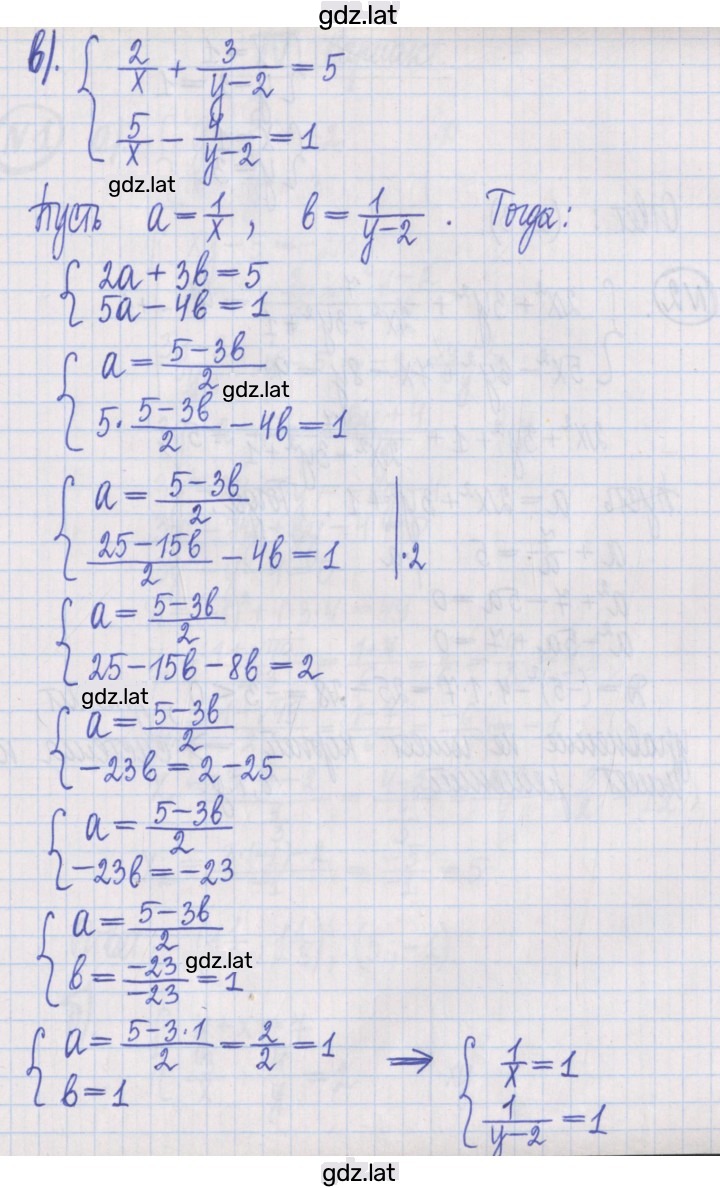 gdz.lat
в). { 2/x + 3/(y-2) = 5
5/x - 4/(y-2) = 1
gdz.lat
Пусть a = 1/x, в = 1/(y-2). Тогда:
{ 2a + 3в = 5
5a - 4в = 1
{ a = (5-3в)/2
gdz.lat
5·(5-3в)/2 - 4в = 1
{ a = (5-3в)/2
(25-15в)/2 - 4в = 1 |·2
{ a = (5-3в)/2
25-15в-8в = 2
gdz.lat
{ a = (5-3в)/2
-23в = 2-25
{ a = (5-3в)/2
-23в = -23
{ a = (5-3в)/2
в = -23/-23 = 1
gdz.lat
{ a = (5-3·1)/2 = 2/2 = 1
в = 1
⇒ { 1/x = 1
1/(y-2) = 1
gdz.lat